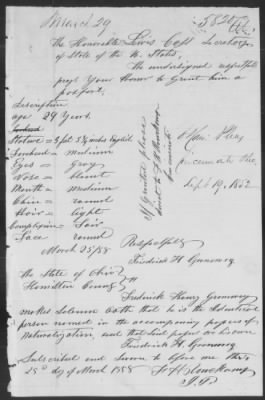 March 29
5820
The Honorable Lewis Cass Secretary
of State of the U. States
The undersigned respectfully
prays Your Honor to Grant him a
passport.
Description
age 29 Years.
Forehead
Stature = 5 feet 5 3/4 inches English
Forehead = medium
Eyes = Gray
Nose = blunt
Mouth = medium
Chin = round
Hair = light
Complexion = Fair
Face round
March 25/58
If granted please
direct to
Cincinnati Ohio
Sept 19, 1852
Respectfully
Friedrich H.
The State of Ohio
Hamilton County
Frederick Henry
makes Solemn Oath that he is the Identical
person named in the accompanying papers of
Naturalization, and that said papers are his own
Friedrich H.
Subscribed and Sworn to before me this
25th day of March 1858
J.P.